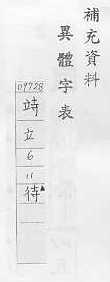 補充資料
異體字表
09728
竢
立
6
11
待